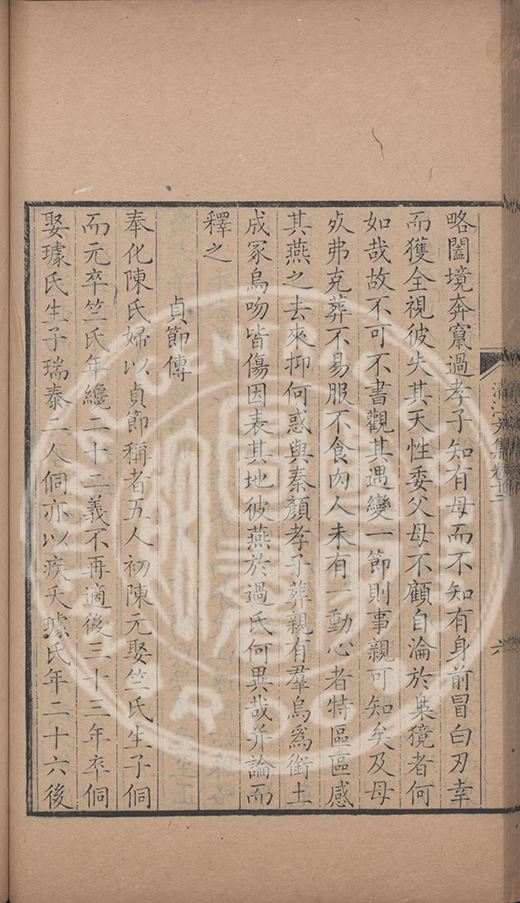 略闔境奔竄過孝子知有母而不知有身前冒白刃幸
而獲全視彼失其天性委父母不顧自淪於梟獍者何
如哉故不可不書觀其遇變一節則事親可知矣及母
歿弗克葬不易服不食內人未有一動心者特區區感
其燕之去來抑何惑與秦顏孝子葬親有羣烏為銜土
成冢烏吻皆傷因表其地彼燕於過氏何異哉并論而
釋之
貞節傳
奉化陳氏婦以貞節稱者五人初陳元娶竺氏生子侗
而元卒竺氏年纔二十二義不再適後三十三年卒侗
娶璩氏生子瑞泰二人侗亦以疾夭璩氏年二十六後
清江文集卷十二
六